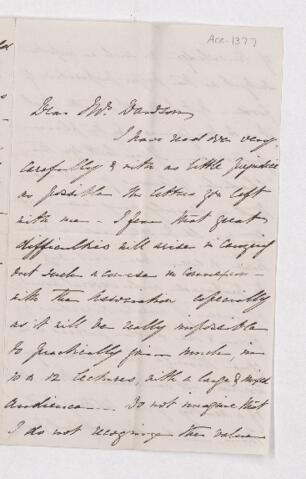 Acc-1377
Dear Mrs. Davidson
I have read over very
carefully & with as little prejudice
as possible the letters you left
with me - I fear that great
difficulties will arise in carrying
out such a course in connexion -
with the Association especially
as it will be really impossible
to practically give much, in
10 or 12 Lectures, with a large & mixed
audience - Do not imagine that
I do not recognize the value